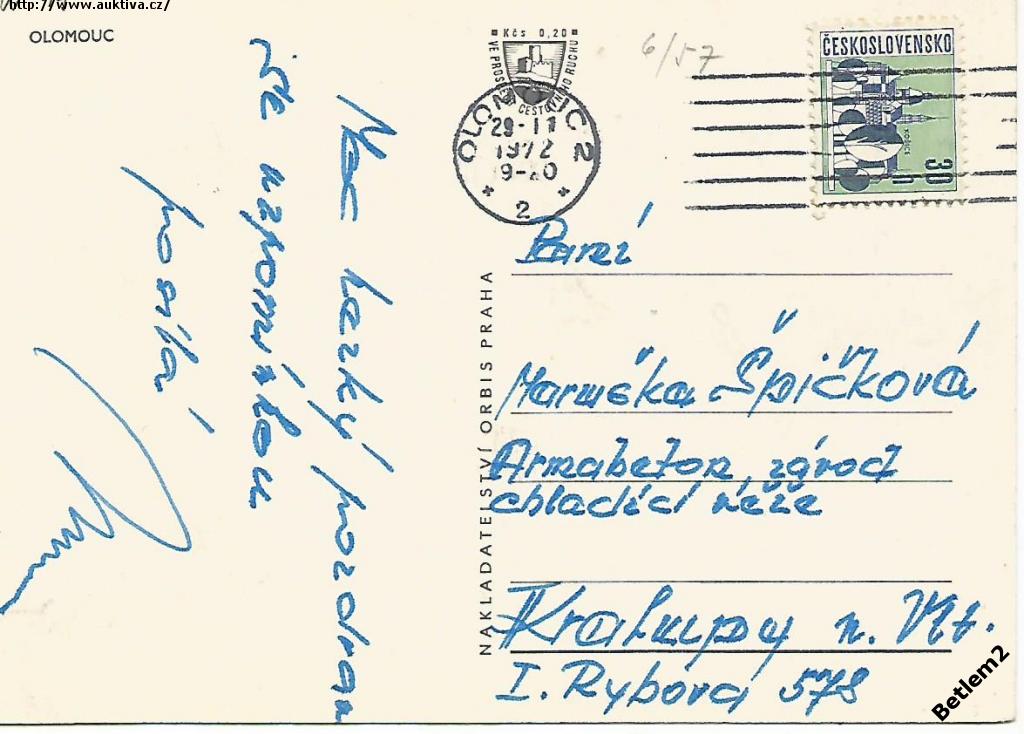 http://www.auktiva.cz/
OLOMOUC
Moc hezký pozdrav
se vzpomínkou
posílá
NAKLADATELSTVÍ ORBIS PRAHA
Kčs 0,20
VE PROSPĚCH CESTOVNÍHO RUCHU
OLOMOUC 2
29-11
1972
19-20
* 2 *
6/57
ČESKOSLOVENSKO
30
h
Paní
Maruška Špičková
Armabeton, závod
chladící věže
Kralupy n. Vlt.
I. Rybova 578
Betlem2